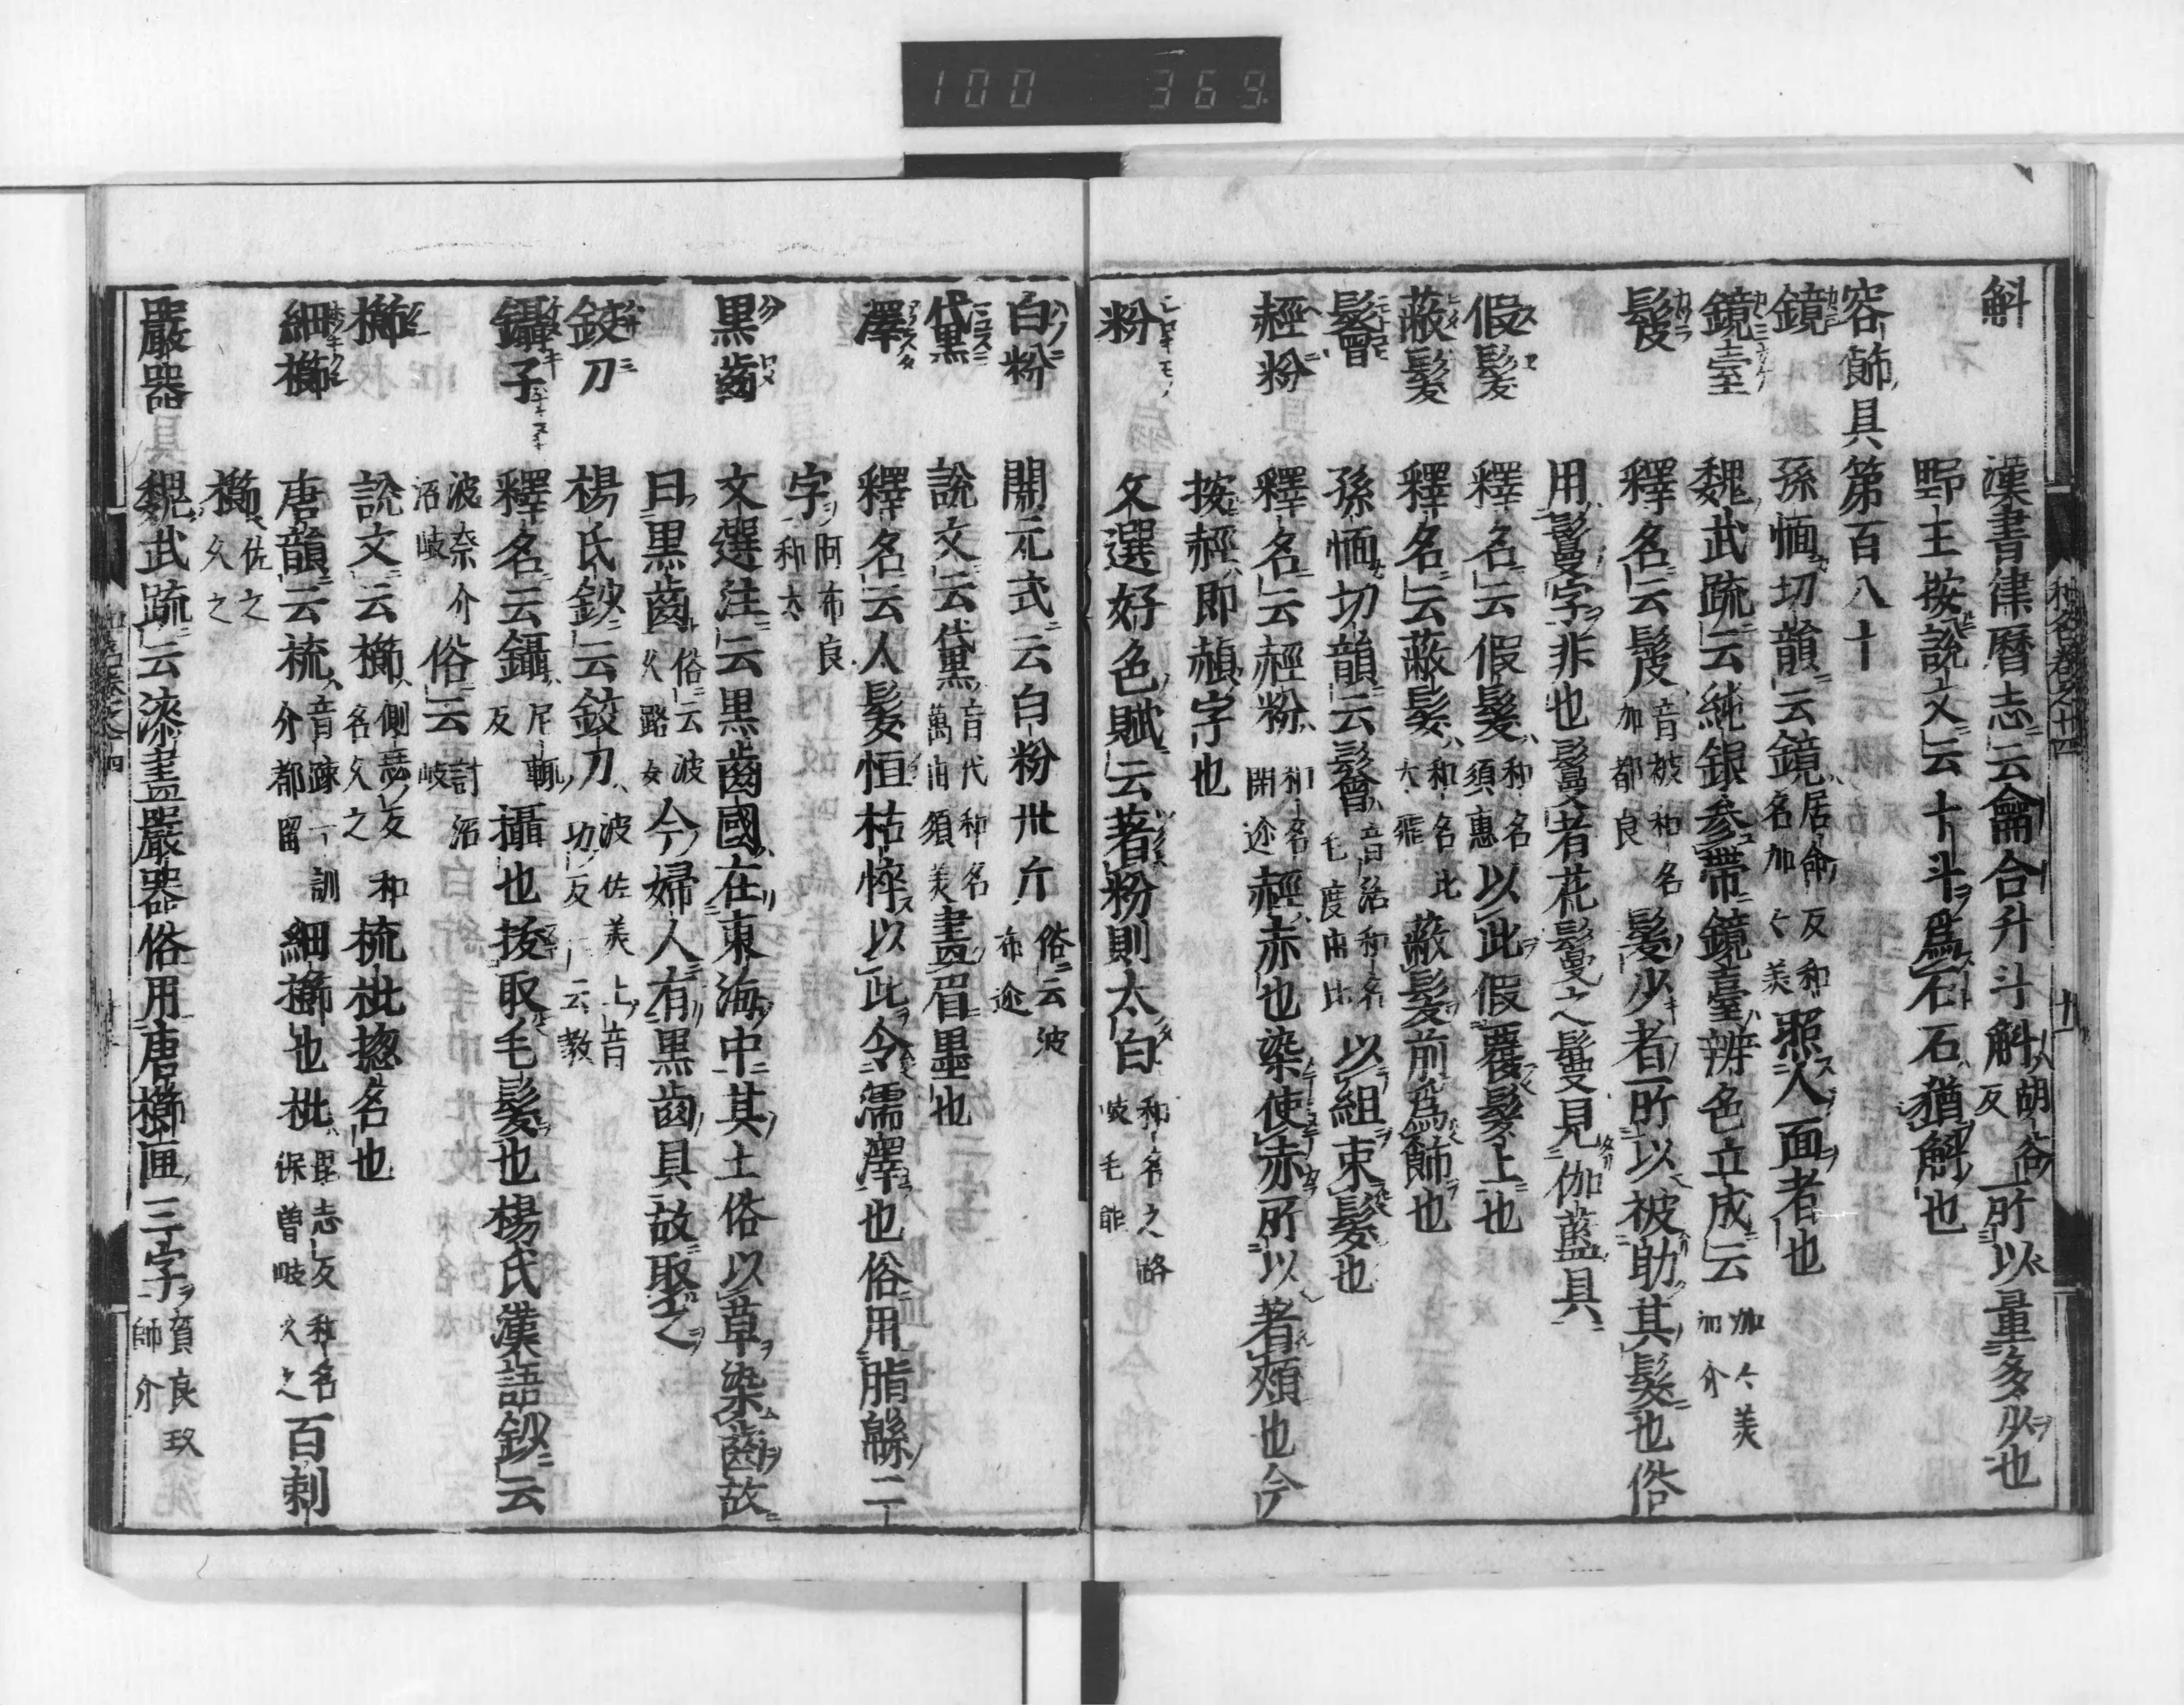 100 369
斛 漢書律暦志云龠合升斗斛胡谷反所以量多少也
野王按説文云十斗爲石石猶斛也
容飾具第百八十
鏡 孫愐切韻云鏡居命反和名加々美照人面者也
鏡臺 魏武疏云純銀参帶鏡臺辨色立成云加々美加介
髲 釋名云髲音被和名加都良髮少者所以被助其髮也俗
用鬘字非也鬘者花鬘之鬘見伽藍具
假髮 釋名云假髮和名須惠以此假覆髮上也
蔽髮 釋名云蔽髮和名比太飛蔽髮前爲飾也
鬠 孫愐切韻云鬠音活和名毛度由比以組束髮也
䞓粉 釋名云䞓粉和名閇迩䞓赤也染使赤所以著頰也今
按䞓即赬字也
粉 文選好色賦云著粉則太白和名之路岐毛能
白粉 開元式云白粉卅斤俗云波布迩
黛 説文云黛音代和名萬由須美畫眉墨也
澤 釋名云人髮恒枯悴以此令濡澤也俗用脂緜二
字阿布良和太
黒齒 文選注云黒齒國在東海中其土俗以草染齒故
曰黒齒俗云波久路女今婦人有黒齒具故取之
鉸刀 楊氏鈔云鉸刀波佐美上音功反一云敎
鑷子 釋名云鑷尼輒反攝也拔取毛髮也楊氏漢語鈔云
波奈介沼岐俗云計沼岐
櫛 説文云櫛側瑟反和名久之梳枇揔名也
細櫛 唐韻云梳音疎一訓介都留細櫛也枇毘志反和名保曽岐久之百刺
櫛佐之久之
嚴器 魏武疏云漆畫嚴器俗用唐櫛匣三字賀良玖師介
和名卷之十四 十一